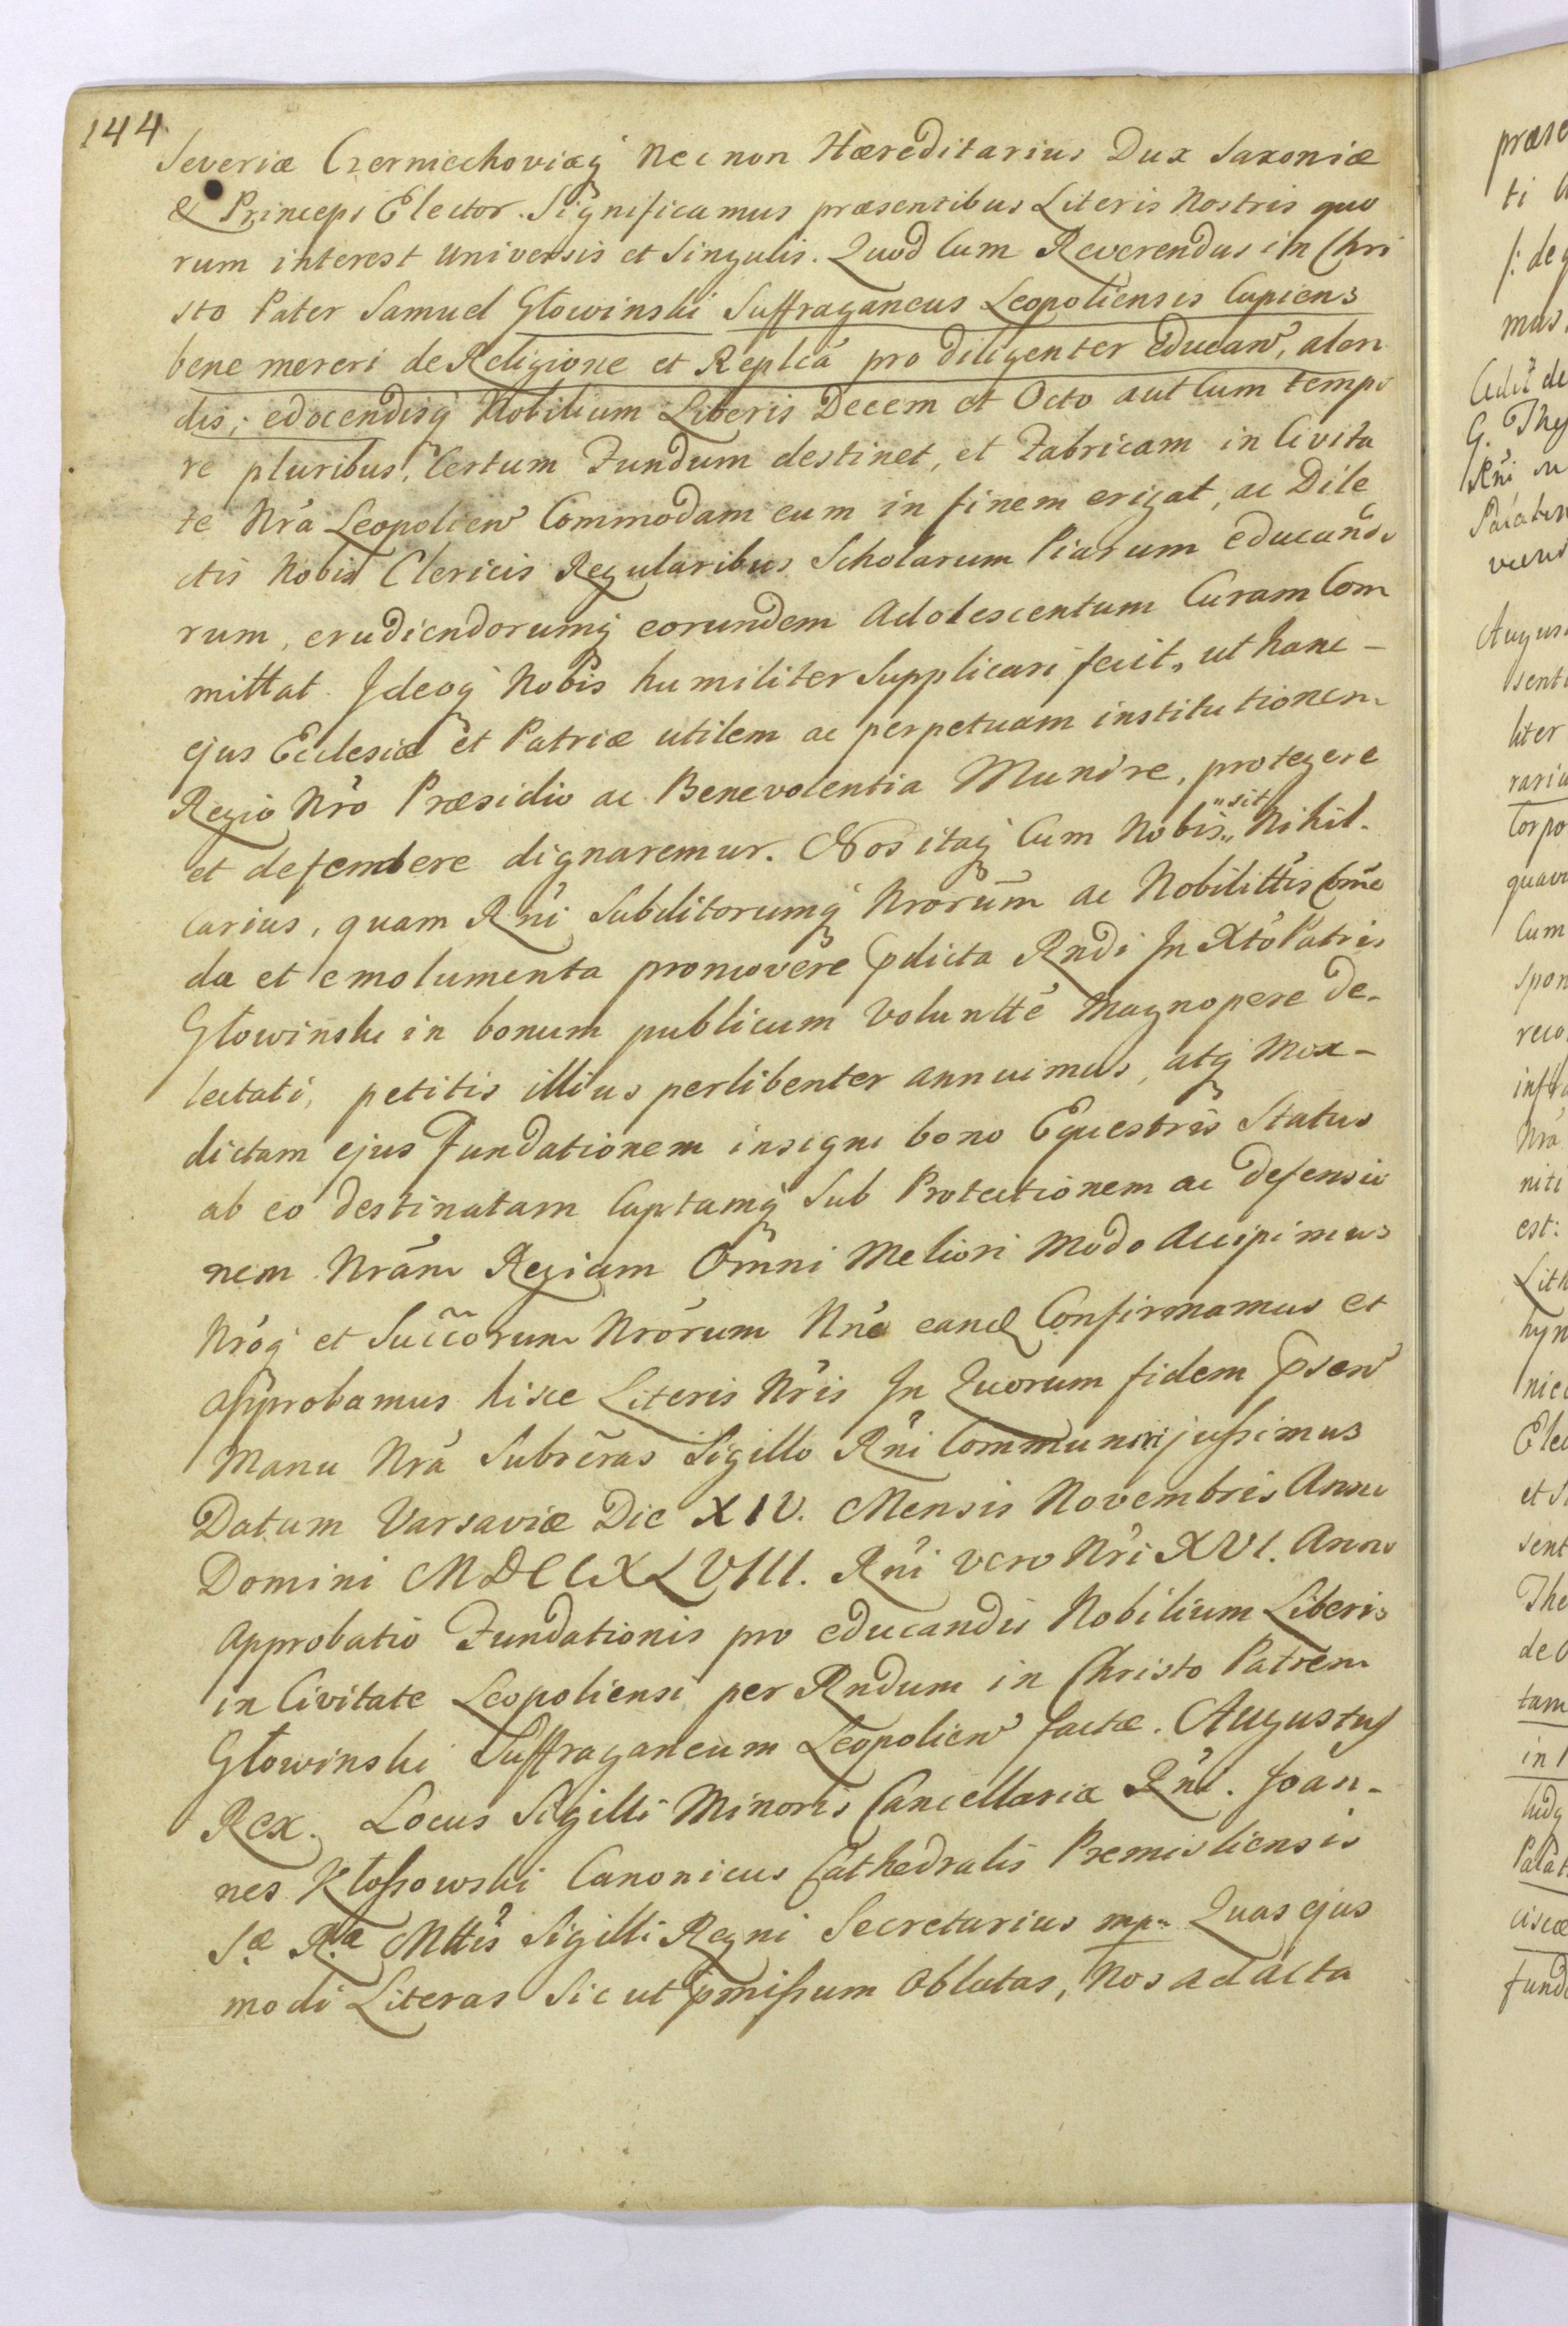 144
Severiæ Czerniechoviæq́ Necnon Hæreditarius Dux Saxoniæ
& Princeps Elector. Significamus præsentibus Literis Nostris quo
rum interest Universis et Singulis. Quod Cum Reverendus in Chri
sto Pater Samuel Głowinski Suffraganeus Leopoliensis Cupiens
bene mereri de Religione et Replĉa pro diligenter educan̂, alen
dis; edocendisq́ Nobilium Liberis Decem et Octo aut Cum tempo
re pluribus, Certum Fundum destinet, et Fabricam in Civita
te Nrã Leopolien̂ Commodam eum in finem erigat, ac Dile
ctis Nobis Clericis Regularibus Scholarum Piarum educando
rum, erudiendorumq́ eorundem Adolescentum Curam Com
mittat. Ideoq́ Nobis humiliter Supplicari fecit, ut hanc -
ejus Ecclesiæ et Patriæ utilem ac perpetuam institutionem
Regio Nrõ Præsidio ac Benevolentia Munire, protegere
et defendere dignaremur. Nos itaq́ Cum Nobis "sit" Nihil
carius, quam Rñi Subditorumq́ Nrõrum ac Nobilittĩs Com̃o
da et emolumenta promovere p̃dicta Rndĩ In Xtõ Patris
Głowinski in bonum publicum Volunttẽ Magnopere de-
lectati, petitis illius perlibenter annuimus, atq́ Mox -
dictam ejus Fundationem insigni bono Equestris Status
ab eo destinatam Captamq́ Sub Protectionem ac defensio
nem Nrãm Regiam Om̃ni Meliori Modo Accipimus
Nrõq́ et Succ̃orum Nrõrum Nñe eand̃ Confirmamus et
approbamus hisce Literis Nrĩs In Quorum fidem p̃sen̂
Manu Nrã Subscr̃as Sigillo Rñi Communiri jussimus
Datum Varsaviæ Die XIV. Mensis Novembris Anno
Domini MDCCXLVIII. Rñi vero Nrĩ XVI. Anno
Approbatio Fundationis pro educandis Nobilium Liberis
in Civitate Leopoliensi per Rndum in Christo Patrem
Głowinski Suffraganeum Leopolien̂ factæ. Augustus
Rex. Locus Sigilli Minoris Cancellariæ Rñi. Joan-
nes Kłossowski Canonicus Cathedralis Premisliensis
S.æ R.æ Mttĩs Sigilli Regni Secretarius mp. Quas ejus
modi Literas Sic ut p̃missum Oblatas, Nos ad acta